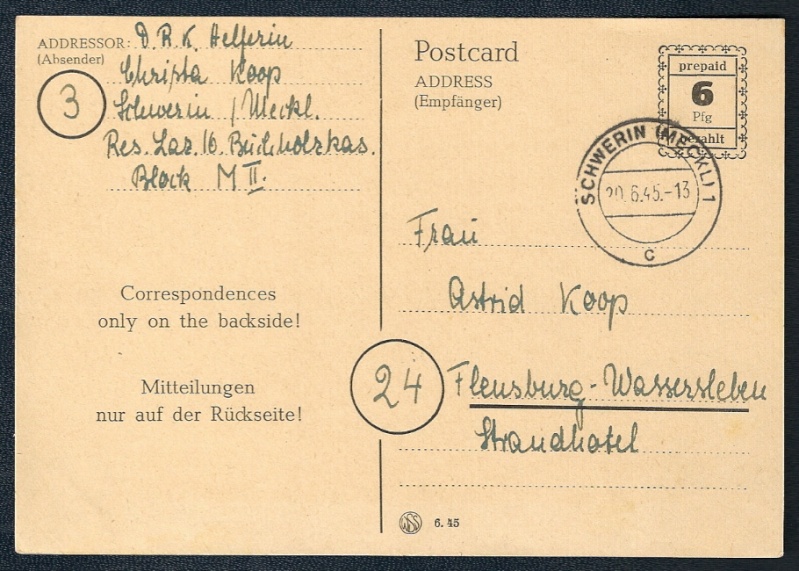 ADDRESSOR: D.R.K. Helferin
(Absender)
Christa Koop
3
Schwerin / Meckl.
Res. Laz. 16. Buchholzkas.
Block M II.
Correspondences
only on the backside!
Mitteilungen
nur auf der Rückseite!
Postcard
ADDRESS
(Empfänger)
prepaid
6
Pfg
SCHWERIN (MECKL) 1
20.6.45.-13
c
Frau
Astrid Koop
24
Flensburg-Wassersleben
Strandhotel
6.45